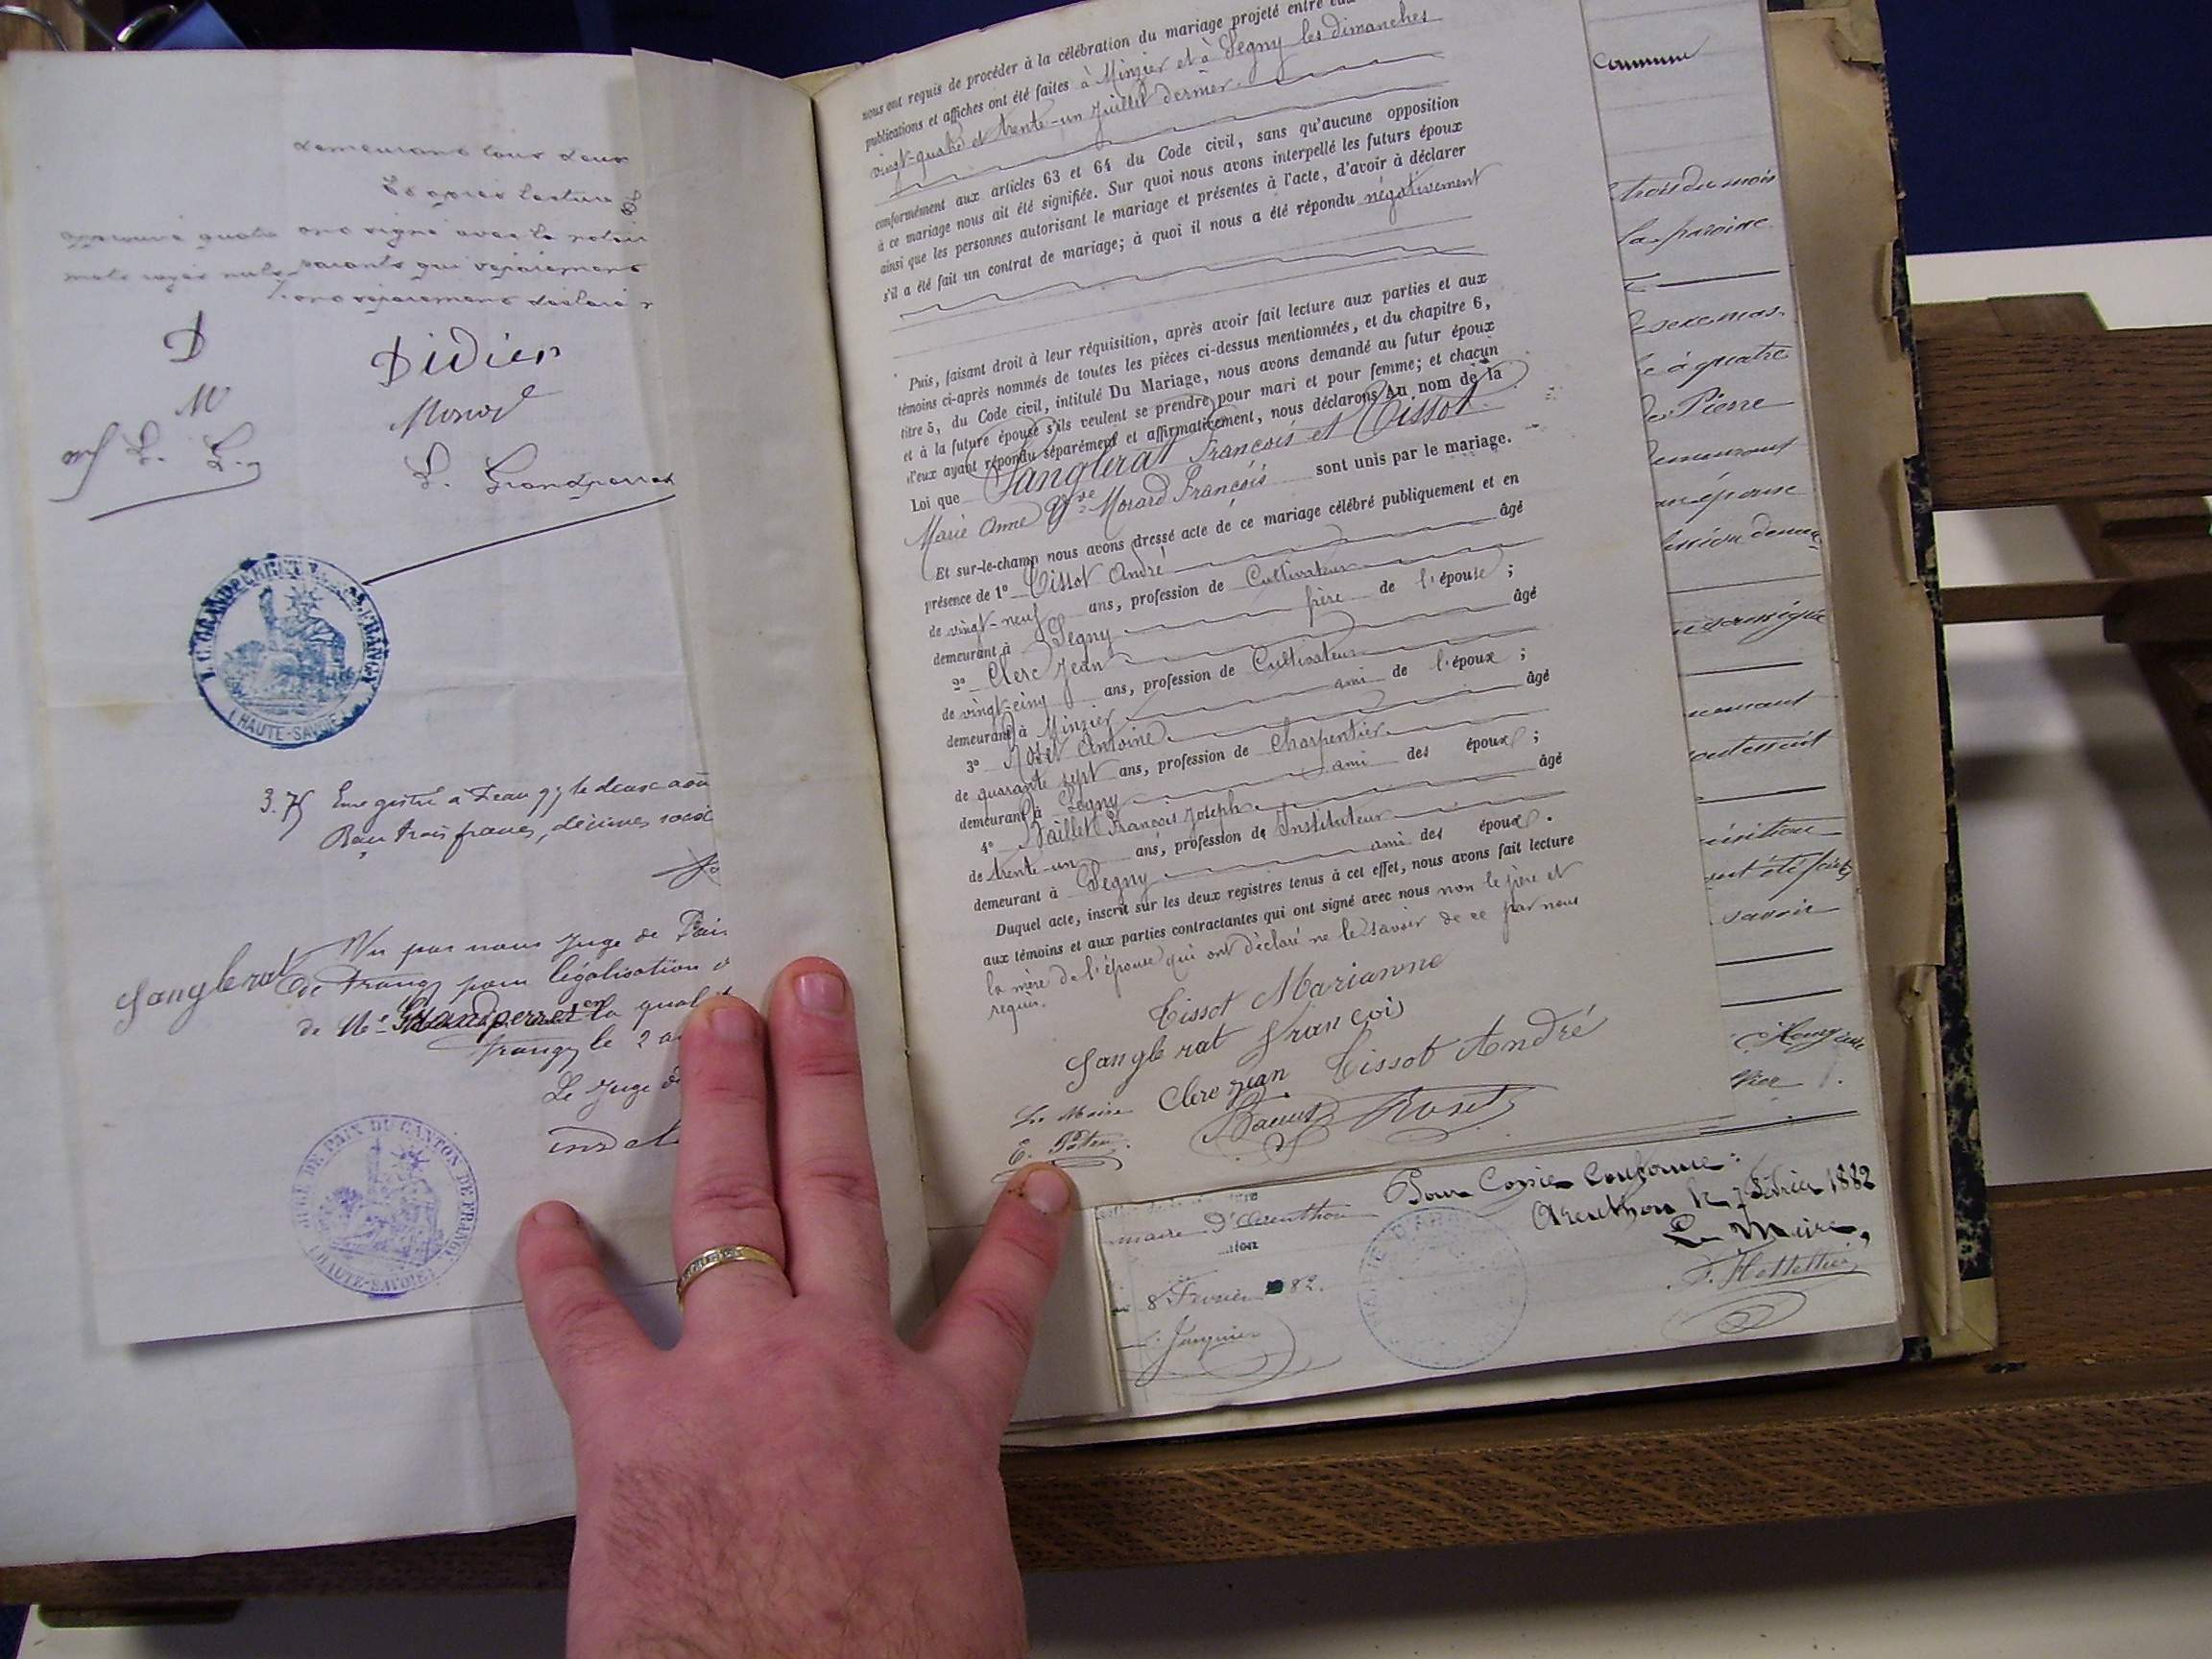 demeurant tous deux
Et après lecture
approuvé quatre ont signé avec le notaire
mots rayés nuls
D Didier
M
L. Grandperret
HAUTE-SAVOIE
3.75 Enregistré à Frangy le deux aoû
Reçu trois francs, décimes
Sanglerat
Vu par nous Juge de Paix
de Frangy pour légalisation
de Me Grandperret en la qual
Frangy le 2 a
Le Juge de
JUGE DE PAIX DU CANTON DE FRANGY
(HAUTE-SAVOIE)
nous ont requis de procéder à la célébration du mariage projeté entre eux
publications et affiches ont été faites à Minzier et à Segny les dimanches
vingt-quatre et trente-un Juillet dernier
conformément aux articles 63 et 64 du Code civil, sans qu'aucune opposition
à ce mariage nous ait été signifiée. Sur quoi nous avons interpellé les futurs époux
ainsi que les personnes autorisant le mariage et présentes à l'acte, d'avoir à déclarer
s'il a été fait un contrat de mariage; à quoi il nous a été répondu négativement
Puis, faisant droit à leur réquisition, après avoir fait lecture aux parties et aux
témoins ci-après nommés de toutes les pièces ci-dessus mentionnées, et du chapitre 6,
titre 5, du Code civil, intitulé Du Mariage, nous avons demandé au futur époux
et à la future épouse s'ils veulent se prendre pour mari et pour femme; et chacun
d'eux ayant répondu séparément et affirmativement, nous déclarons Au nom de la
Loi que Sanglerat François et Tissot
Marie Anne Vve Morard François sont unis par le mariage.
Et sur-le-champ nous avons dressé acte de ce mariage célébré publiquement et en
présence de 1° Tissot André âgé
de vingt-neuf ans, profession de Cultivateur
demeurant à Segny frère de l'épouse ;
2° Clerc Jean âgé
de vingt-cinq ans, profession de Cultivateur
demeurant à Minzier ami de l'époux ;
3° Roset Antoine âgé
de quarante sept ans, profession de Charpentier
demeurant à Segny ami des époux ;
4° François Joseph âgé
de trente-un ans, profession de Instituteur
demeurant à Segny ami des époux.
Duquel acte, inscrit sur les deux registres tenus à cet effet, nous avons fait lecture
aux témoins et aux parties contractantes qui ont signé avec nous non le père et
la mère de l'épouse qui ont déclaré ne le savoir de ce par nous
requis.
Tissot Marianne
Sanglerat François
Clerc Jean Tissot André
Le Maire Roset
E.
commune
trois du mois
la paroisse
sexe mas-
à quatre
de Pierre
demeurant
son épouse
soussigné
savoir
Pour Copie Conforme :
Arenthon le 7 Février 1882
Le Maire,
maire D'Arenthon
8 Février 82.